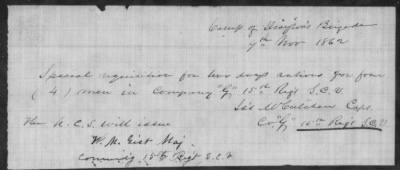 Camp of Drayton's Brigade
7th Nov 1862
Special requisition for two days rations for four
(4) men in Company "G" 15th Regt S.C.V.
Jas McCutchen Capt
Co "G" 15th Regt S.C.V
The A.C.S. will issue
W. M. Gist Maj
Commdg 15th Regt S.C.V